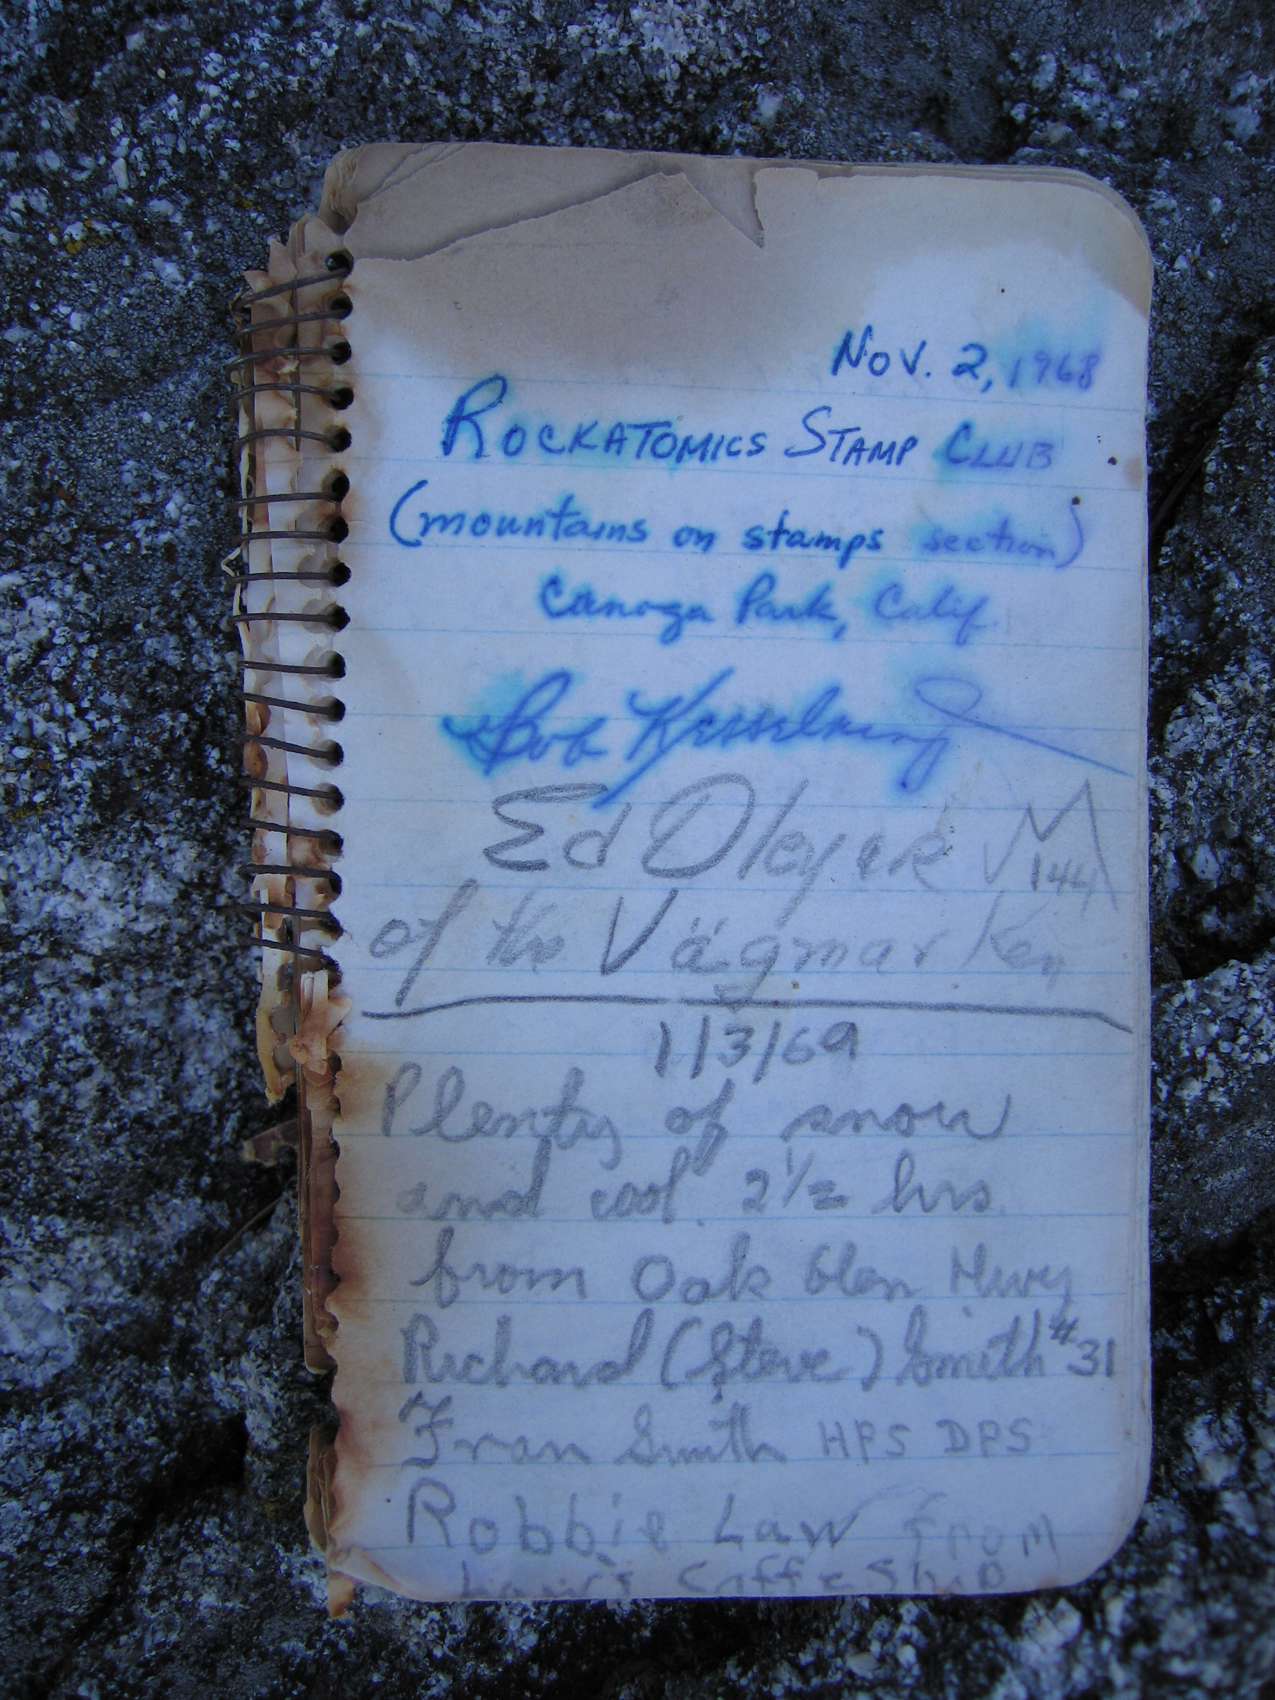 Nov. 2, 1968
ROCKATOMICS STAMP CLUB
(mountains on stamps section)
Canoga Park, Calif.
Bob Kesselring
Ed Dleyer 144
of the Vägmarken
1/3/69
Plenty of snow
and cool. 2 1/2 hrs.
from Oak Glen Hwy
Richard (Steve) Smith #31
Fran Smith HPS DPS
Robbie Law from
Law's Coffe Shop